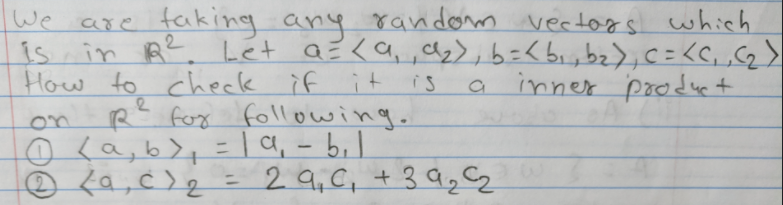 We are taking any random vectors which
is in ℝ². Let a = <a₁, a₂>, b = <b₁, b₂>, c = <c₁, c₂>
How to check if it is a inner product
on ℝ² for following.
① <a, b>₁ = |a₁ - b₁|
② <a, c>₂ = 2 a₁c₁ + 3 a₂c₂